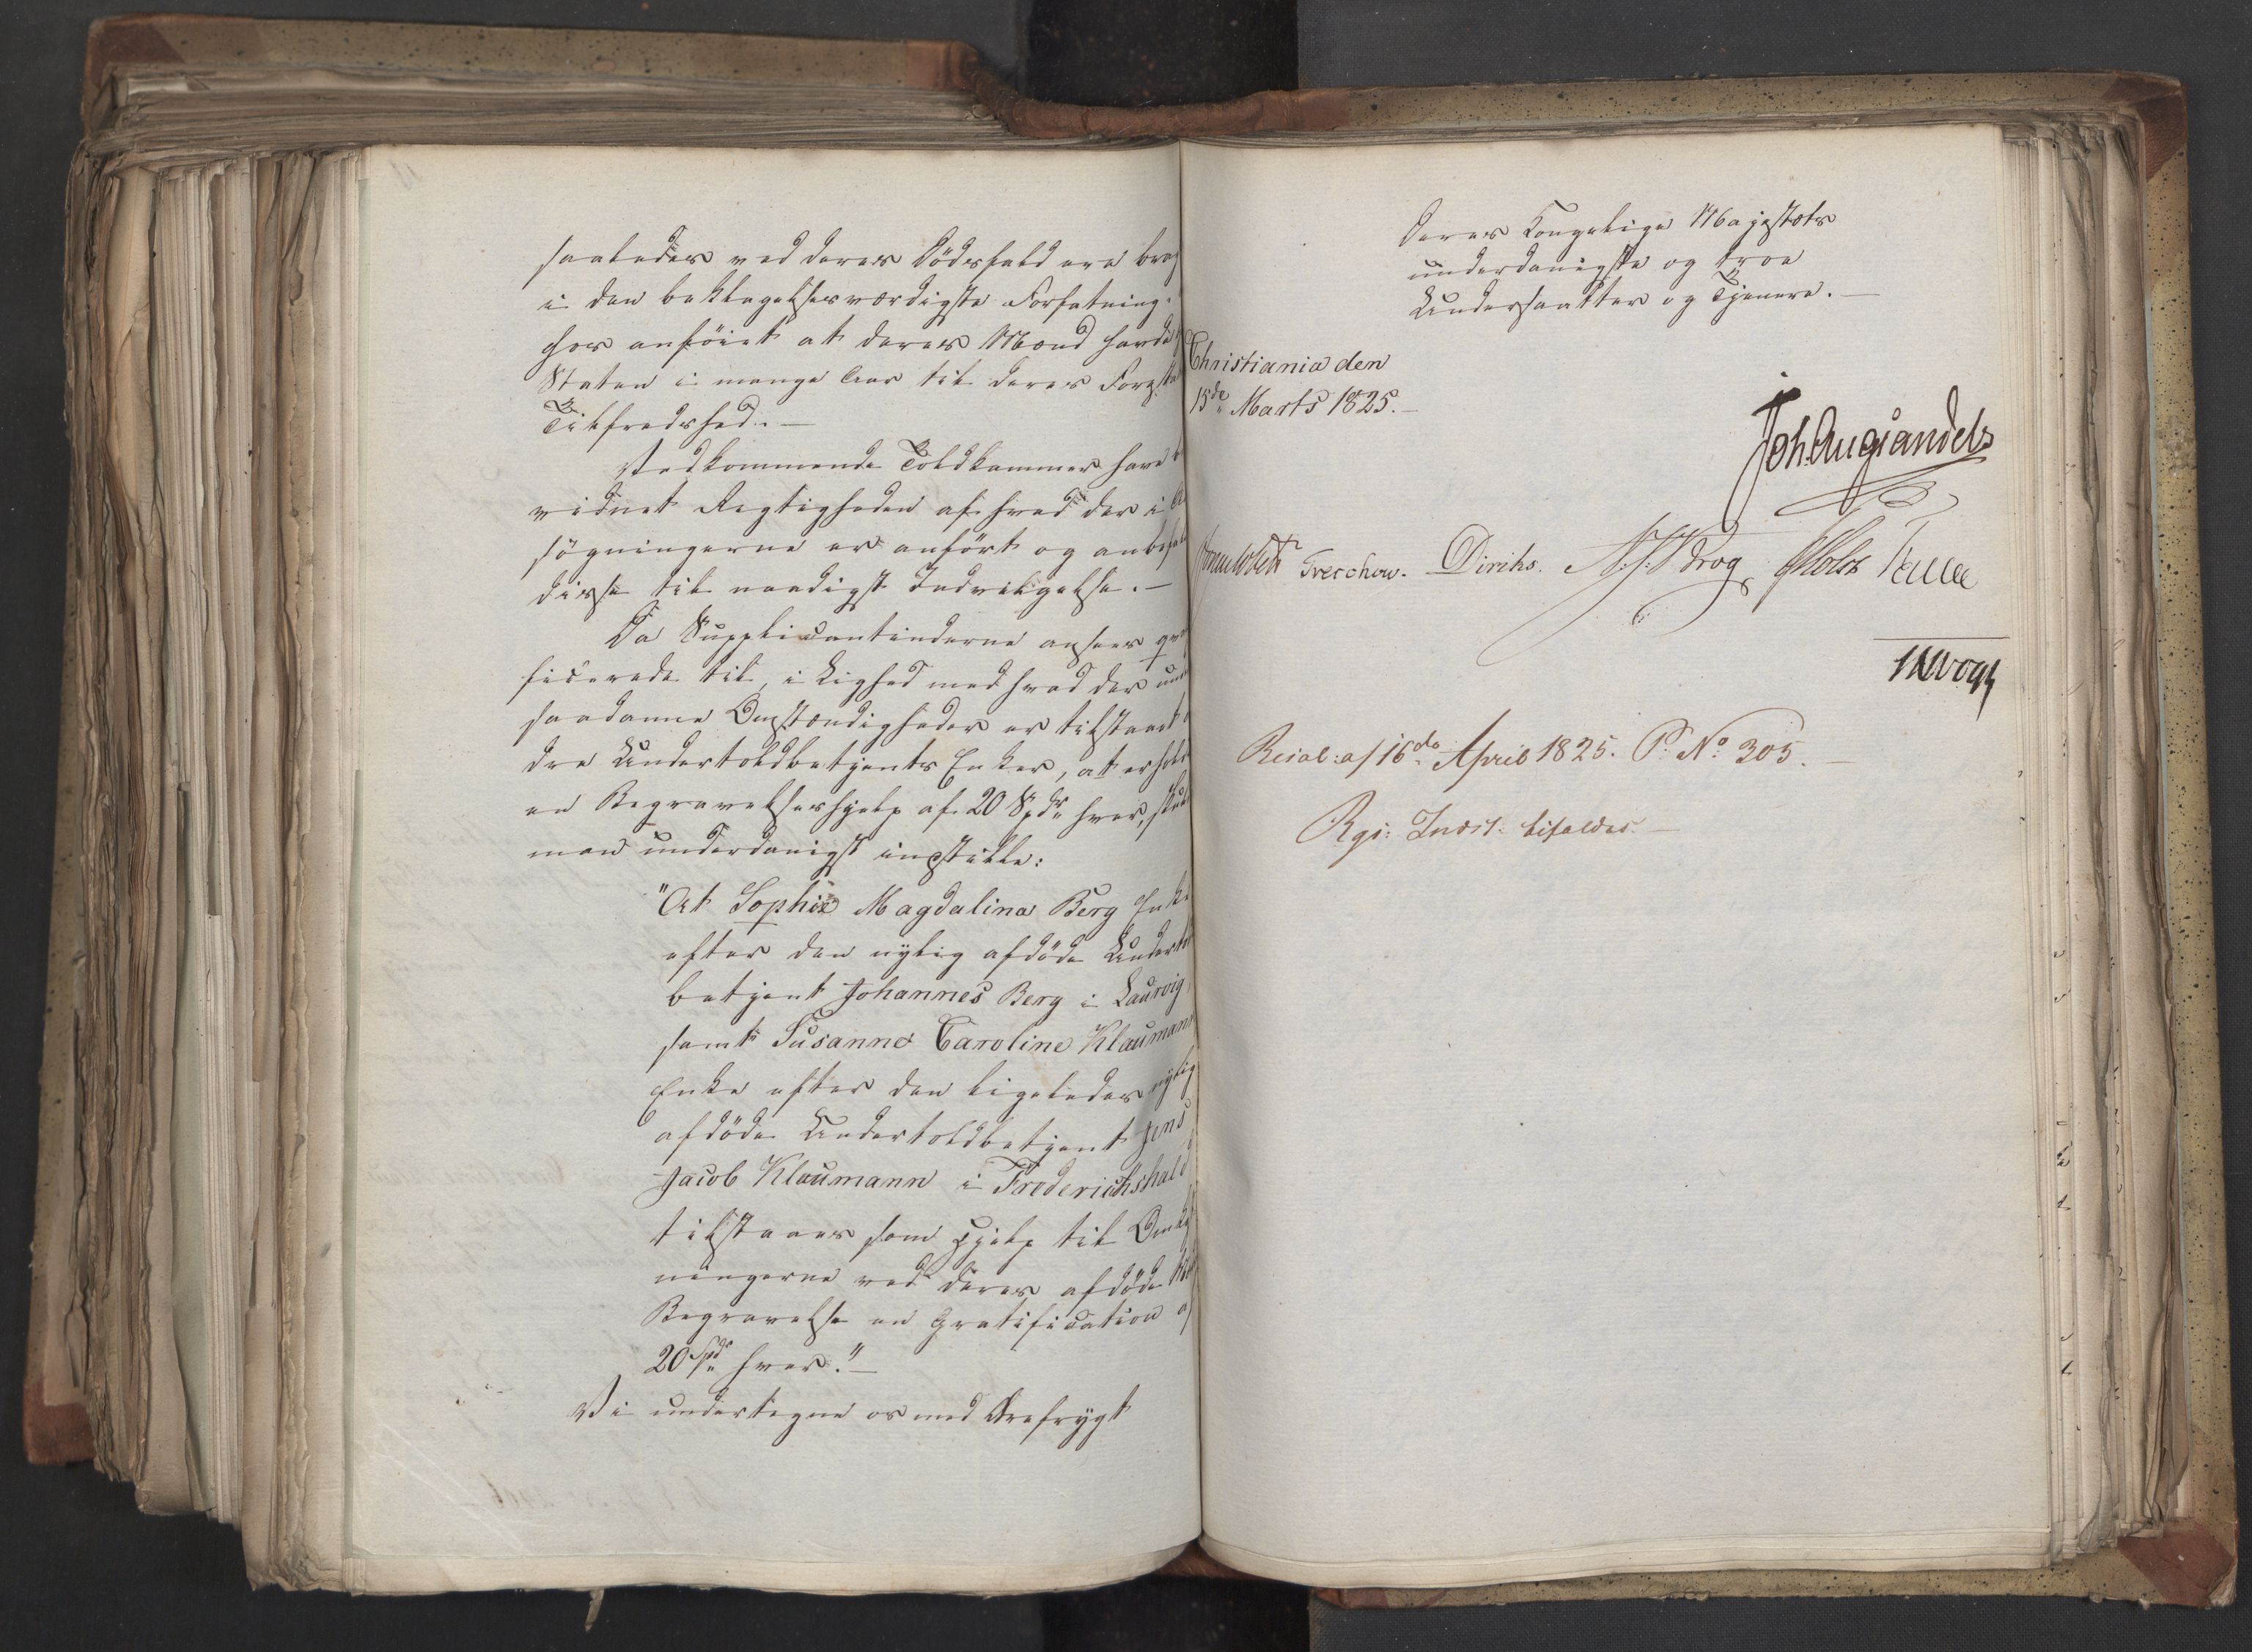 saaledes ved deres Dödsfald ere brag
i den beklagelsesværdigste Forfatning.
hos anföiet at deres Mænd havde
Staten i mange Aar til deres Foresa
Tilfredshed. —
Vedkommende Toldkammer have b
vidnet Rigtigheden af hvad der i A
søgningerne er anfört og anbefale
disse til naadigst Indvilgelse. —
Da Supplicantinderne ansees qva
ficerede til, i Lighed med hvad der und
saadanne Omstændigheder er tilstaaet
dre Undertoldbetjents Enker, at erhold
en Begravelseshjelp af 20 Spdr hver, skul
man underdanigst indstille:
"At Sophie Magdalina Berg Enke
efter den nylig afdöde Undertold
betjent Johannes Berg i Laurvig
samt Susanne Caroline Klaumann
Enke efter den ligeledes nylig
afdöde Undertoldbetjent Jens
Jacob Klaumann i Frederichshald
tilstaaes som Hjelp til Omkost
ningerne ved deres afdöde Mæ
Begravelse en Gratification af
20 Spdr hver." —
Vi undertegne os med Ærefrygt
Deres Kongelige Majestæts
underdanigste og troe
Undersaatter og Tjenere. —
Christiania den
15de Marts 1825. —
Joh. Aug. Sandels
Treschow. Diriks. Krog Holst
Vogt
Resol: af 16de April 1825. P. No 305. —
Rgs: Indst: bifaldes. —